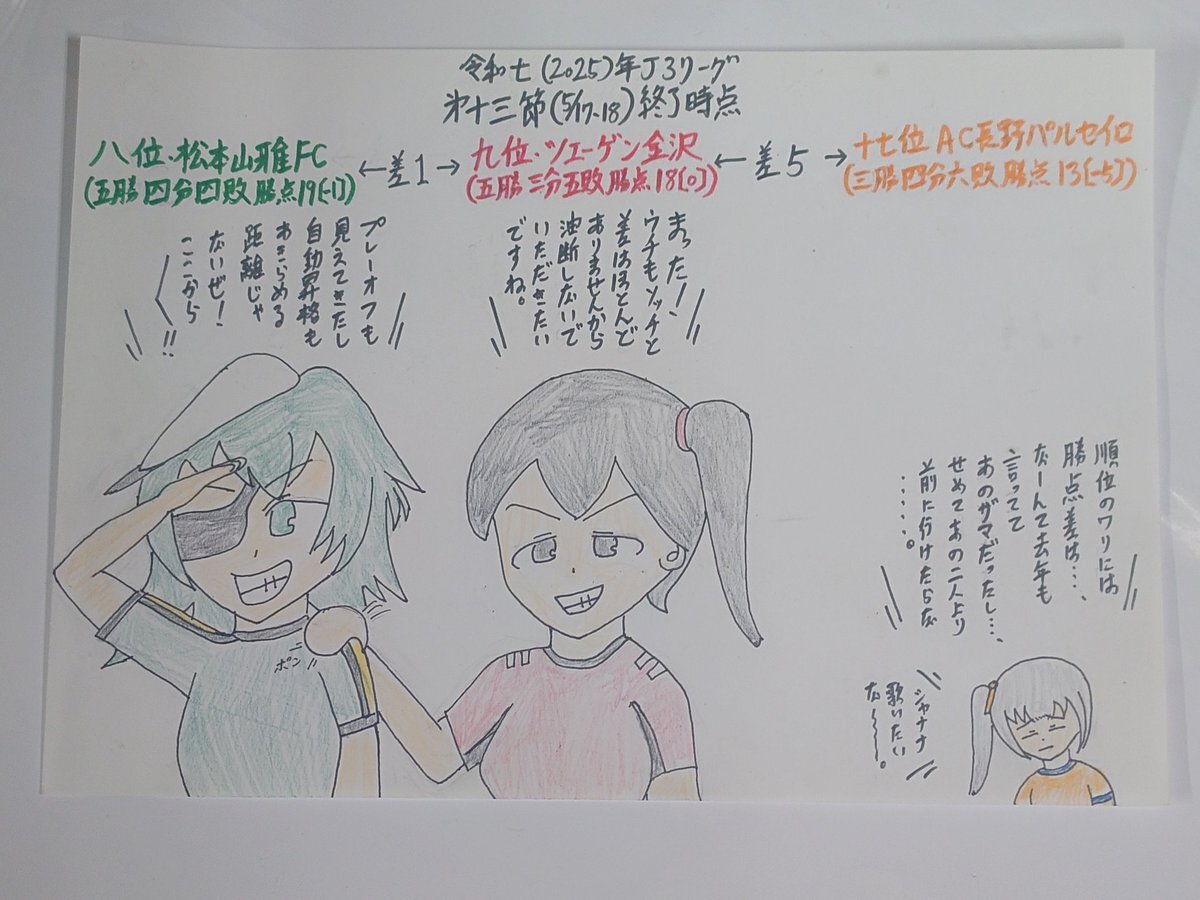 令和七(2025)年J3リーグ
第十三節(5/17-18)終了時点
八位.松本山雅FC
(五勝四分四敗勝点19[-1])
←差1→
九位.ツエーゲン金沢
(五勝三分五敗勝点18[0])
←差5→
十七位 AC長野パルセイロ
(三勝四分六敗勝点13[-5])
プレーオフも
見えてきたし
自動昇格も
あきらめる
距離じゃ
ないぜ!
ここから
!!
まった!
ウチもソッチと
差はほとんど
ありませんから
油断しないで
いただきたい
ですね。
順位のワリには
勝点差は…、
なーんて去年も
言ってて
あのザマだったし…、
せめてあの二人より
前に行けたらな
……。
シャナナ
歌いたい
な〜〜。
ポン